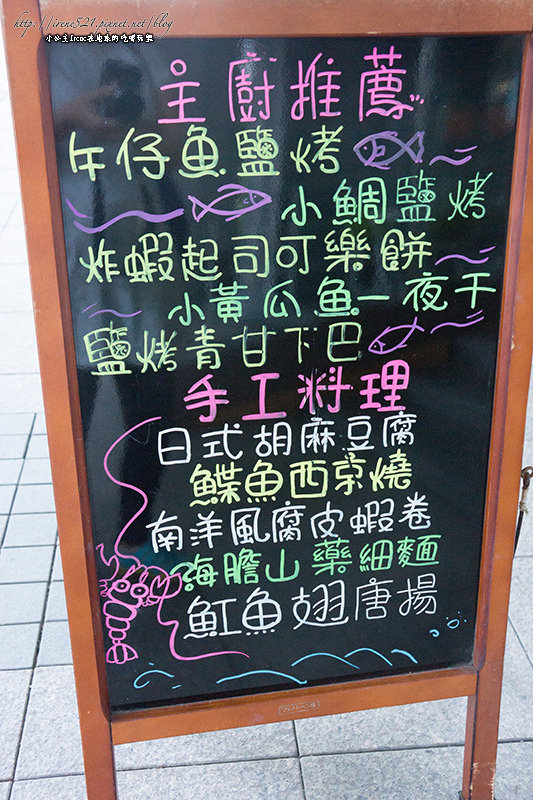 http://irene521.pixnet.net/blog
小公主Irene在泡泡的吃喝玩樂
主廚推薦
午仔魚鹽烤
小鯛鹽烤
炸蝦起司可樂餅
小黃瓜魚一夜干
鹽烤青甘下巴
手工料理
日式胡麻豆腐
鰈魚西京燒
南洋風腐皮蝦卷
海膽山藥細麵
魟魚翅唐揚